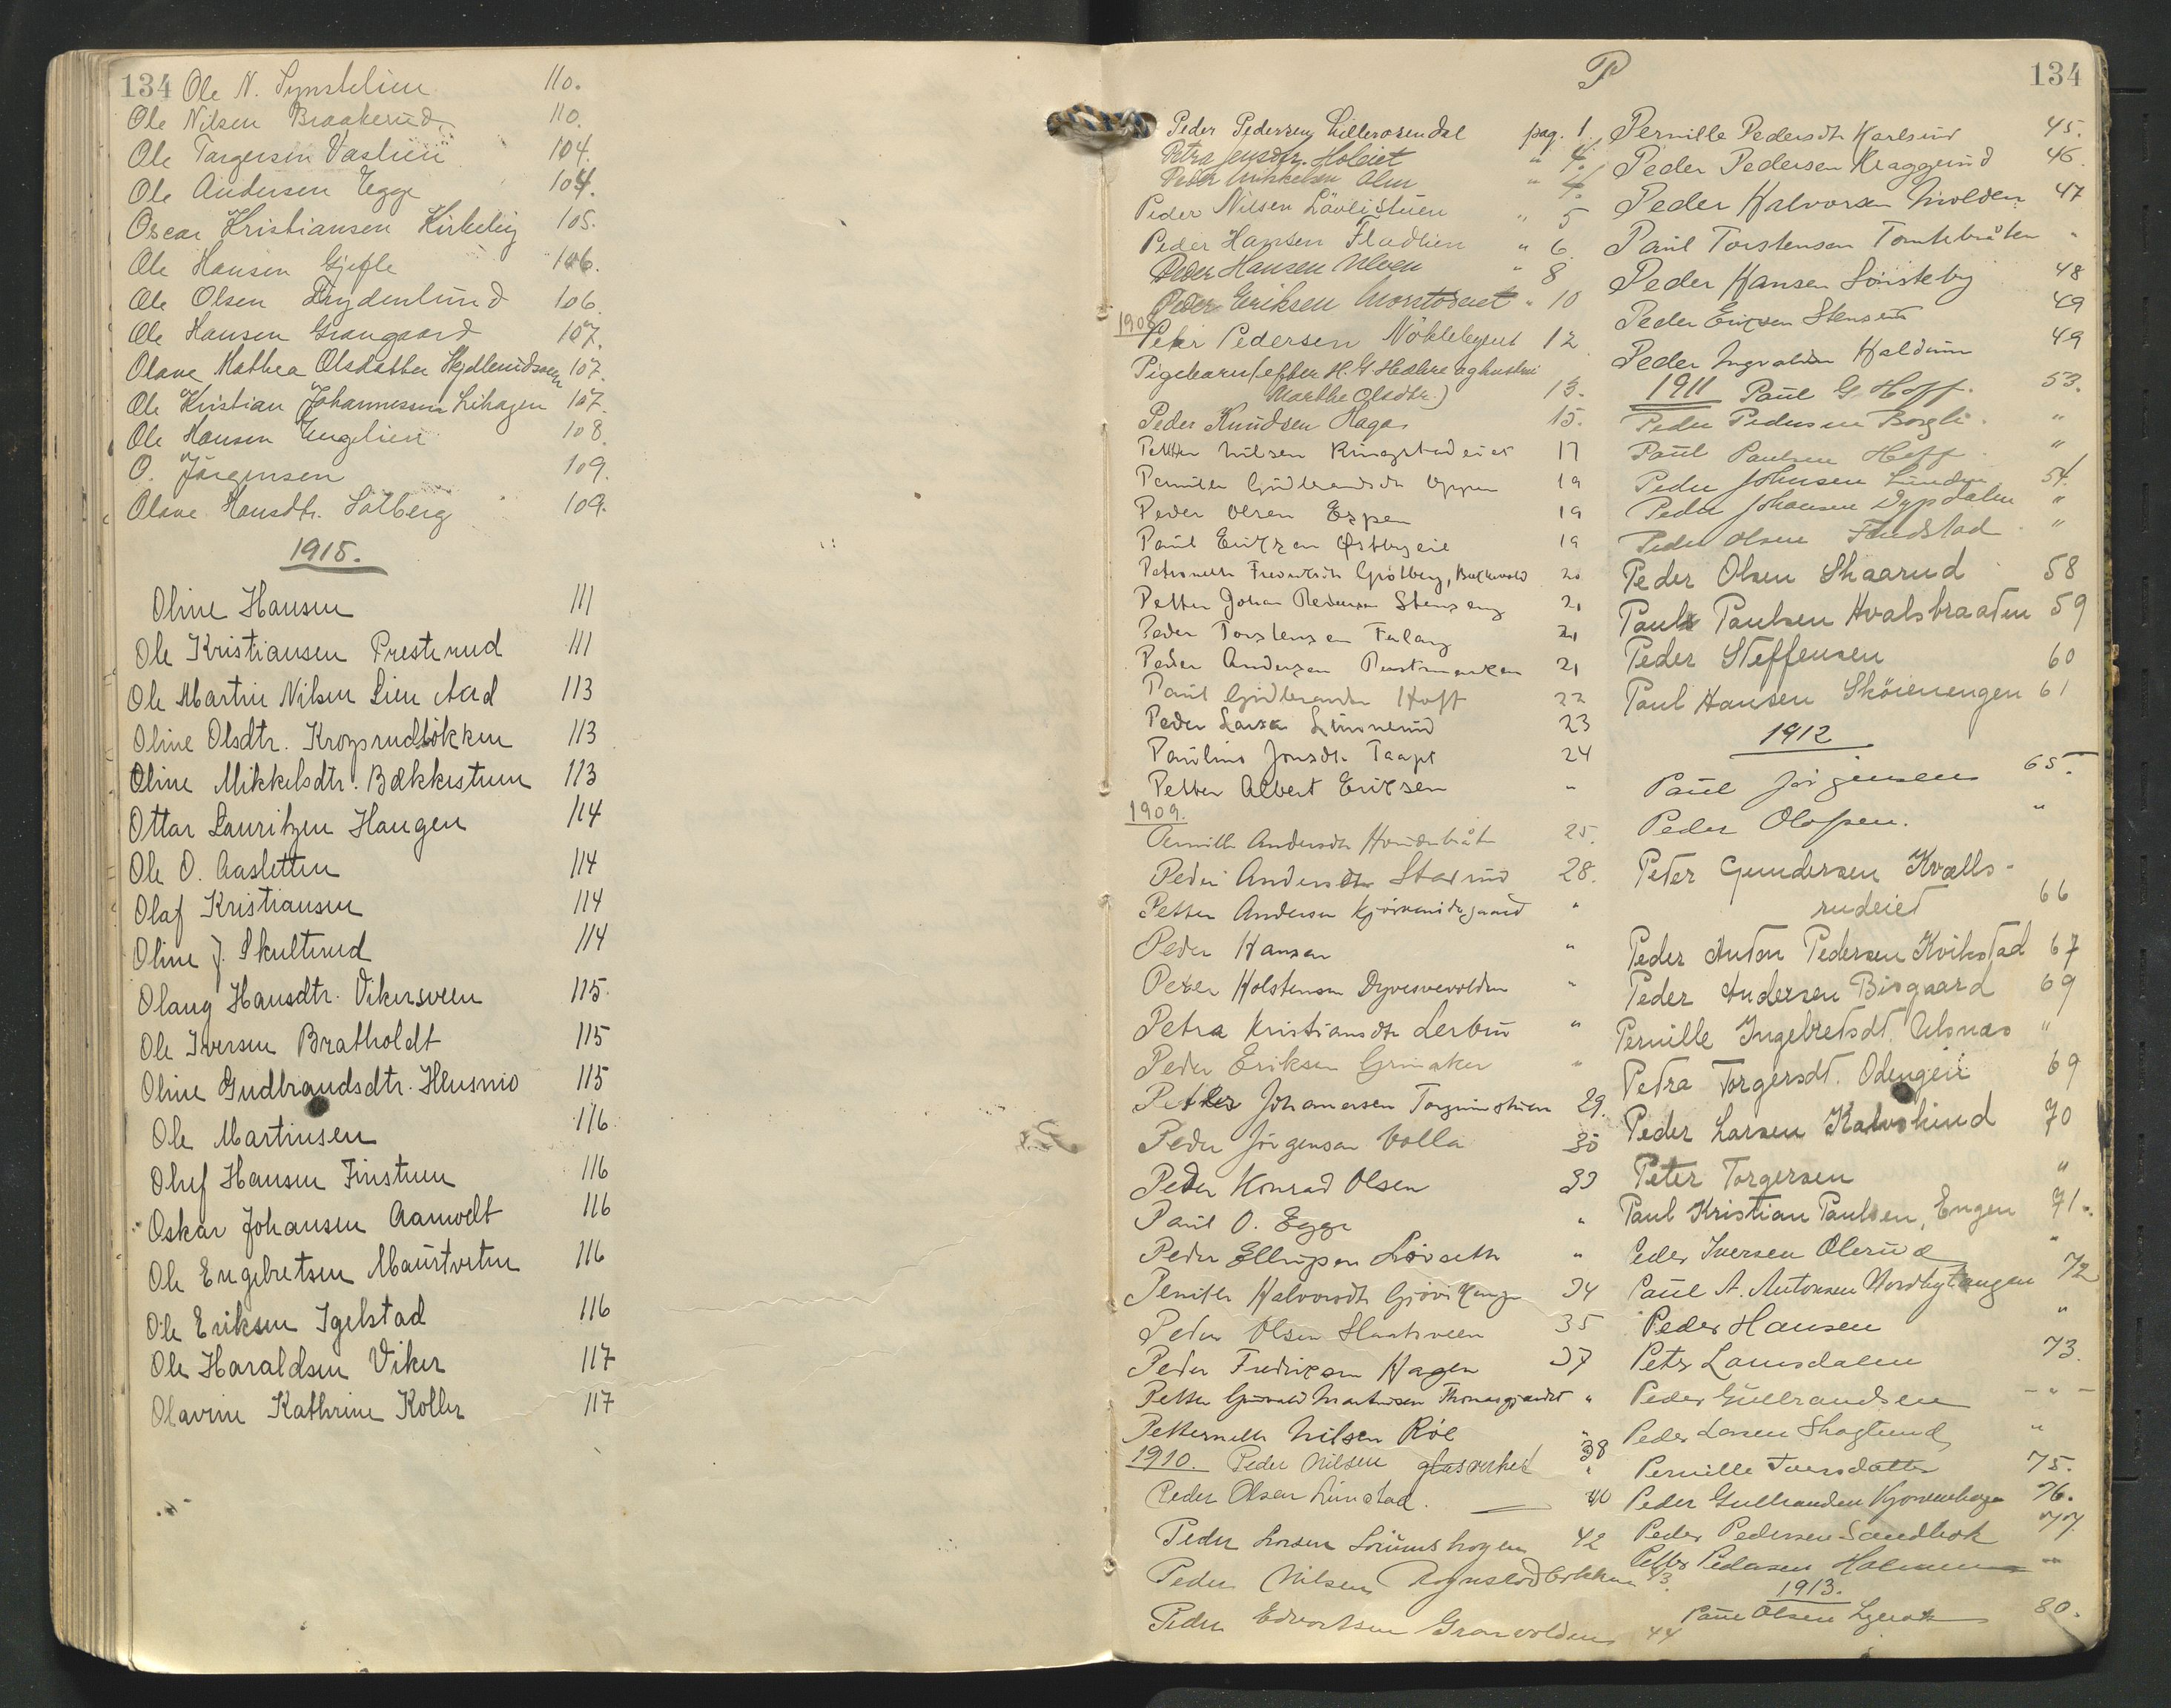 134 Ole N. Synstelien 110.
Ole Nilsen Braakerud 110.
Ole Torgersen Vaslien 104.
Ole Andersen Egge 104.
Oscar Kristiansen Kirkelig 105.
Ole Hansen Gjefle 106.
Ole Olsen Frydenlund 106.
Ole Hansen Grangaard 107.
Olave Mathea Olsdatter 107.
Ole Kristian Johannessen Lihagen 107.
Ole Hansen Engelien 108.
O. Jörgensen 109.
Olave Hansdtr. Solberg 109.
1915.
Oline Hansen 111
Ole Kristiansen Presterud 111
Ole Martin Nilsen Lien 113
Oline Olsdtr. 113
Oline Mikkelsdtr. Bækkestuen 113
Ottar Lauritzen Haugen 114
Ole O. Aasletten 114
Olaf Kristiansen 114
Oline J. Skulterud 114
Olaug Hansdtr. Vikersveen 115.
Ole Iversen Bratholdt 115
Oline Gudbrandsdtr. 115
Ole Martinsen 116
Oluf Hansen Finstuen 116
Oskar Johansen Aamodt 116
Ole Engebretsen 116
Ole Eriksen Igelstad 116
Ole Haraldsen Viker 117
Olavine Kathrine Koller 117
P 134
Peder Pedersen Lillerosendal pag. 1.
Petra Jensdtr. Holeiet " 4.
Peder Mikkelsen Alm " 4.
Peder Nilsen Lövlistuen " 5
Peder Hansen Fladlien " 6
Peder Hansen Ulven " 8
Peder Eriksen " 10
1908
Peter Pedersen 12
Pigebarn (efter H. G. Hæhre og hustru
Marthe Olsdtr.) 13.
Peder Knudsen Haga 15.
Petter Nilsen Ringstadeiet 17
Pernille Gudbrandsdtr. 19
Peder Olsen Espen 19
Paul Eriksen Østbyeie 19
Petronelle 20
Petter Johan Pedersen Stenseng 21
Peder Torstensen Falang 21
Peder Andersen 21
Paul Gudbrandsen Hoff 22
Peder Larsen Linnerud 23
Pauline Jonsdtr. 24
Petter Albert Eriksen "
1909.
Pernille Andersdtr. 25.
Peder Andersen 28.
Petter Andersen "
Peder Hansen "
Peder Holstensen "
Petra Kristiansdtr. "
Peder Eriksen Grinaker "
Petter Johansen 29.
Peder Jörgensen Volla 30
Peder Konrad Olsen 33
Paul O. Egge "
Peder Ellingsen "
Pernille Halvorsdtr. 34
Peder Olsen 35
Peder Fredriksen Hagen 37
Petter "
Petternelle Nilsen Röe " 38
1910. Peder Nilsen glasverket "
Peder Olsen Linstad 40
Peder Larsen 42
Peder Nilsen 43.
Peder Granvolden 44
Pernille Pedersdtr. Karlsrud 45.
Peder Pedersen Kraggerud 46.
Peder Halvorsen Molden 47
Paul Torstensen Tomtebråten "
Peder Hansen Sönsteby 48
Peder Eriksen 49
Peder Ingvaldsen Haldum 49
1911 Paul G. Hoff. 53.
Peder Pedersen Borgli "
Paul Paulsen Hoff "
Peder Johnsen Linden 54.
Peder Johansen Dypdalen "
Peder Olsen "
Peder Olsen Skaarud 58
Paul Paulsen Hvalsbraaten 59
Peder Steffensen 60
Paul Hansen Sköienengen 61
1912
Paul Jörgensen 65.
Peder Olafsen. "
Peter Gundersen Kvælls-
rudeiet 66
Peder Anton Pedersen Kvikstad 67
Peder Andersen Bisgaard 69
Pernille Ingebretsdt. Ulsnæs "
Petra Torgersdt. 69
Peder Larsen 70
Peter Torgersen "
Paul Kristian Paulsen, Engen 71.
Peder Iversen Olerud "
Paul A. Antonsen Nordbytangen 72
Peder Hansen "
Peter Lansdalen 73.
Peder Gulbrandsen - " -
Peder Larsen Skoglund "
Pernille Iversdatter 75.
Peder Gulbrandsen 76.
Peder Pedersen Sandbok 77.
Petter Pedersen Holmen "
1913.
Paul Olsen 80.